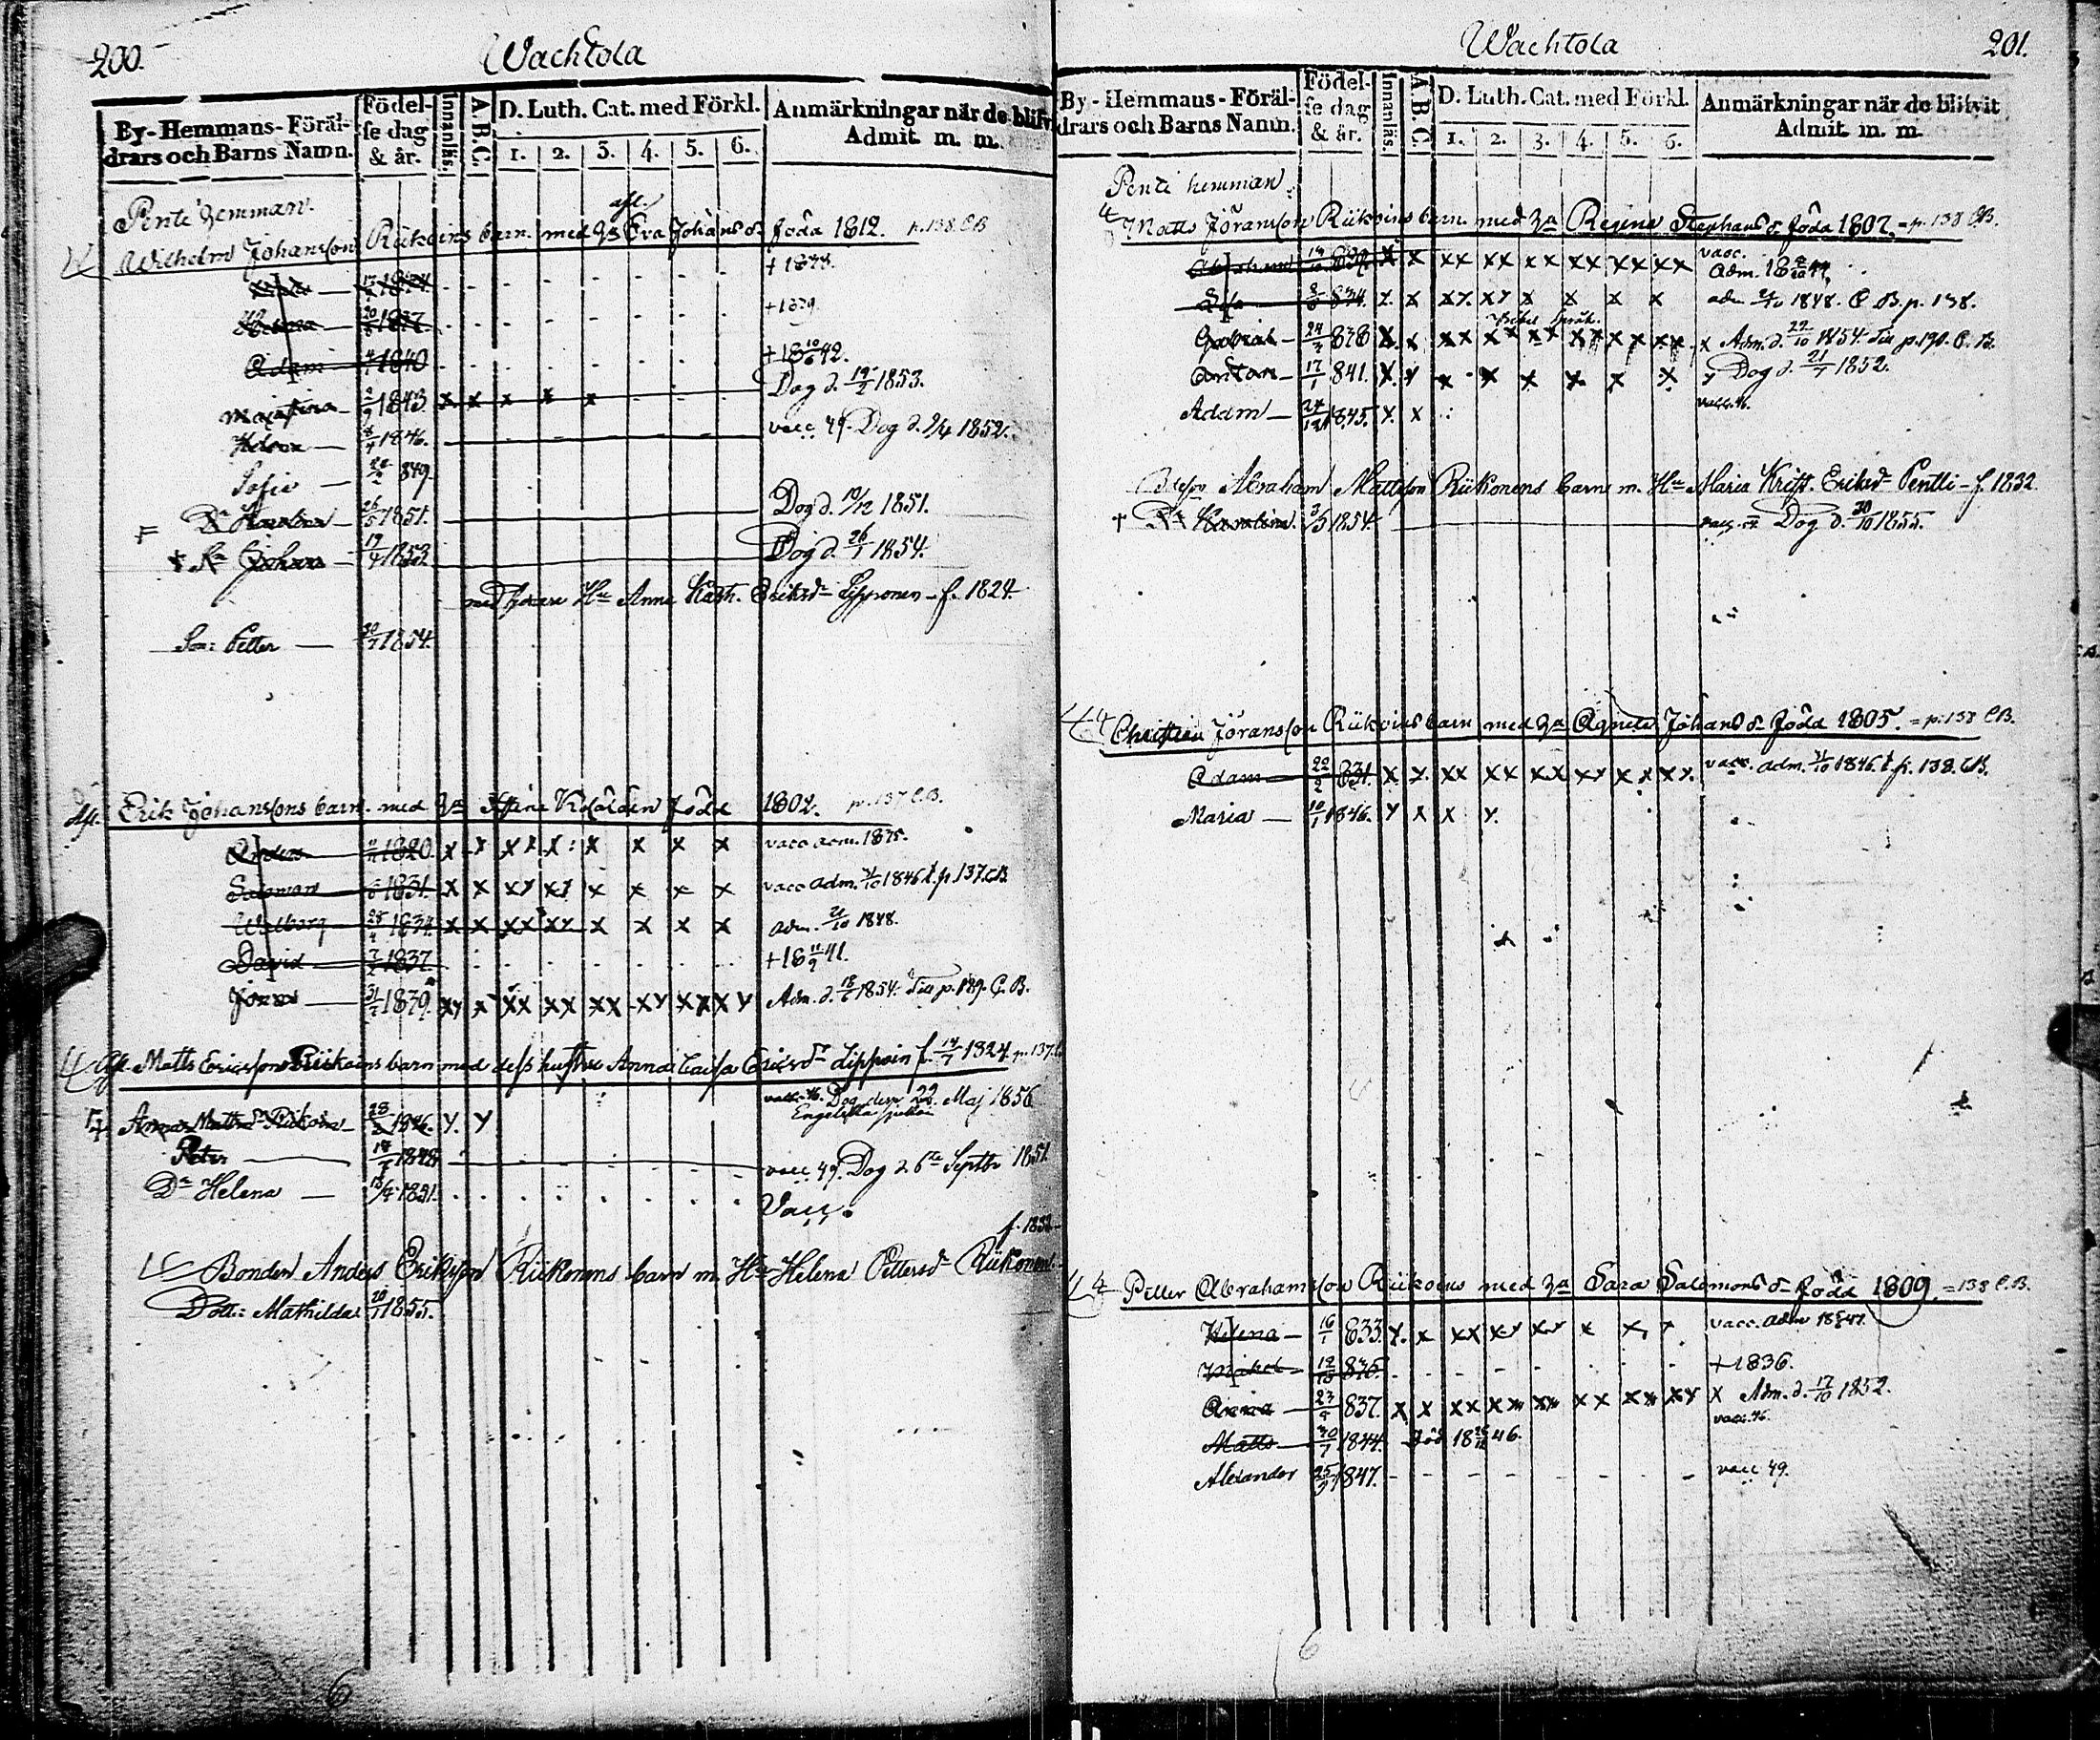 200.
Wachtola
By-Hemmans-Föräl-
drars och Barns Namn.
Födel-
se dag
& år.
Innanläs.
A.B.C.
D. Luth. Cat. med Förkl.
1. 2. 3. 4. 5. 6.
Anmärkningar när de blifv
Admit. m. m.
Penti hemman.
afl.
Wilhelm Johansson Riikoins barn med Eva Johansd: föda 1812. p. 138 CB
1834. + 1838.
Helena 20/8 1837. + 1839.
Adam 1840 + 18 10/6 42.
Maja Stina 2/9 1843. x x x x x Dog d. 19/2 1853.
8/4 1846. vacc 49. Dog d. 9/4 1852.
Sofie 849.
Dr 26/5 1851. Dog d. 19/12 1851.
Sn Johan 19/4 1853. Dog d. 26/1 1854.
med Hu Anna Kath. Eriksd Lipponen f. 1824
Son: Petter 30/7 1854.
Afl. Erik Johanssons barn med Stina föda 1802. p. 137 C.B.
Anders 1820. x x x x x : x x x x vacc adm. 1835.
Salomon 1831. x x xx xx x x x x vacc adm. 1846 t. p 137. CB
Walborg 28/4 1834. x x xx xx x x x x adm. 21/10 1848.
David 7/2 1837. + 18 11/9 41.
Jöran 31/7 1839. xx x xx xx xx xx xx xx Adm. d. 18/6 1854. Till p. 189. C. B.
Afl. Matts Ericsson Riikoins barn med dess hustru Anna Caisa Ericsdr Lippoin f. 14/7 1824. p. 137.
Anna Mattsdr Riikoin 28/2 1846. x. x vacc. 46. Dog den 22. Maj 1856
Engelska sjukan
Peter 14/7 1848. vacc 49. Dog d 6te Septbr 1851
Dr Helena 18/4 1851. Vacc.
f. 1832
Bonden Anders Eriksson Riikonens barn m. Hu Helena Pettersdr Riikonen
Dott: Mathilda 20/1 1855.
6
Wachtola
201.
By-Hemmans-Föräl-
drars och Barns Namn.
Födel-
se dag
& år.
Innanläs.
A.B.C.
D. Luth. Cat. med Förkl.
1. 2. 3. 4. 5. 6.
Anmärkningar när de blifvit
Admit. m. m.
Penti hemman
Matts Jöransson Riikoins barn med Regina Stephansd: föda 1807. = p. 138 CB.
Abraham 832. x x xx xx xx xx xx xx vacc.
adm. 18 44.
834. x. x xx xx x x x x adm. 1848. C B. p. 138.
Gabriel 24/3 838 x. x xx xx xx xx xx xx x Adm. d. 22/10 1854. Till p. 190. C. B.
Antan 17/1 841. x. x x x x x x x x Dog d. 21/7 1852.
Adam 24/12 1845. x. x vacc. 46.
Abraham Mattsson Riikonens barn m. Hu Maria Krist. Eriksdr Pentti f. 1832
Dr Karolina. 3/5 1854. vacc. Dog d. 20/10 1855.
Christian Jöransson Riikoins barn med Agneta Johansd: föda 1805. = p. 138 CB.
Adam 22/2 831. x x. xx xx xx xx xx xx. vacc. adm. 1846. t. p. 138. CB.
Maria 10/1 1846. x x x x.
Petter Abrahamsson Riikoins med Sara Salomonsd: föda 1809. = 138 C.B.
Helena 16/1 833. x. x xx xx xx x x, x vacc. adm 18 47.
835. + 1836.
Anna 23/9 837. x x xx xx xx xx xx xx x Adm. d. 17/10 1852.
vacc. 46.
Matts 30/7 1844. död 18 46.
Alexander 25/3 1847. vacc 49.